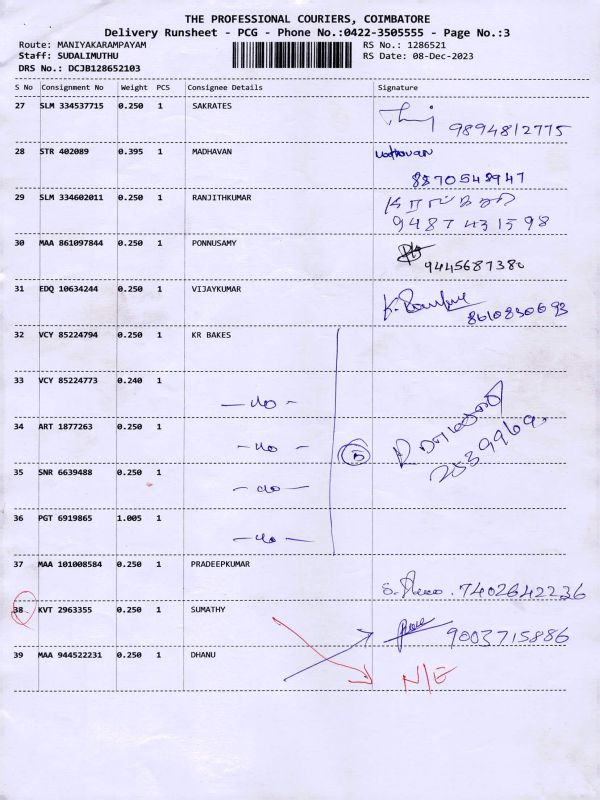 THE PROFESSIONAL COURIERS, COIMBATORE
Delivery Runsheet - PCG - Phone No.:0422-3505555 - Page No.:3
Route: MANIYAKARAMPAYAM RS No.: 1286521
Staff: SUDALIMUTHU RS Date: 08-Dec-2023
DRS No.: DCJB128652103
S No Consignment No Weight PCS Consignee Details Signature
27 SLM 334537715 0.250 1 SAKRATES
9894812775
28 STR 402089 0.395 1 MADHAVAN Madhavan
8870548947
29 SLM 334602011 0.250 1 RANJITHKUMAR
9487431598
30 MAA 861097844 0.250 1 PONNUSAMY
9445687380
31 EDQ 10634244 0.250 1 VIJAYKUMAR
8610830693
32 VCY 85224794 0.250 1 KR BAKES
33 VCY 85224773 0.240 1
— do —
34 ART 1877263 0.250 1
— do — 5 2539969
35 SNR 6639488 0.250 1
— do —
36 PGT 6919865 1.005 1
— do —
37 MAA 101008584 0.250 1 PRADEEPKUMAR
7402642236
38 KVT 2963355 0.250 1 SUMATHY
9003715886
39 MAA 944522231 0.250 1 DHANU
N/E